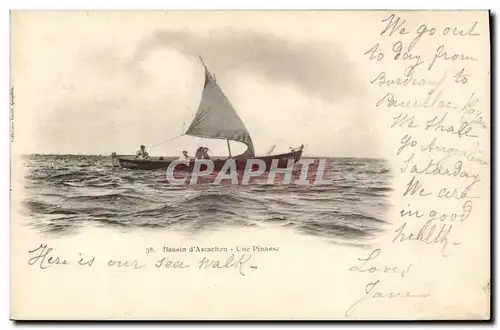 We go out
to day from
Bordeaux to
Pauillac
We shall
go
Saturday
We are
in good
health
Love
Jane
CPARAMA
38. Bassin d'Arcachon - Une Pinasse
Here is our sea walk -